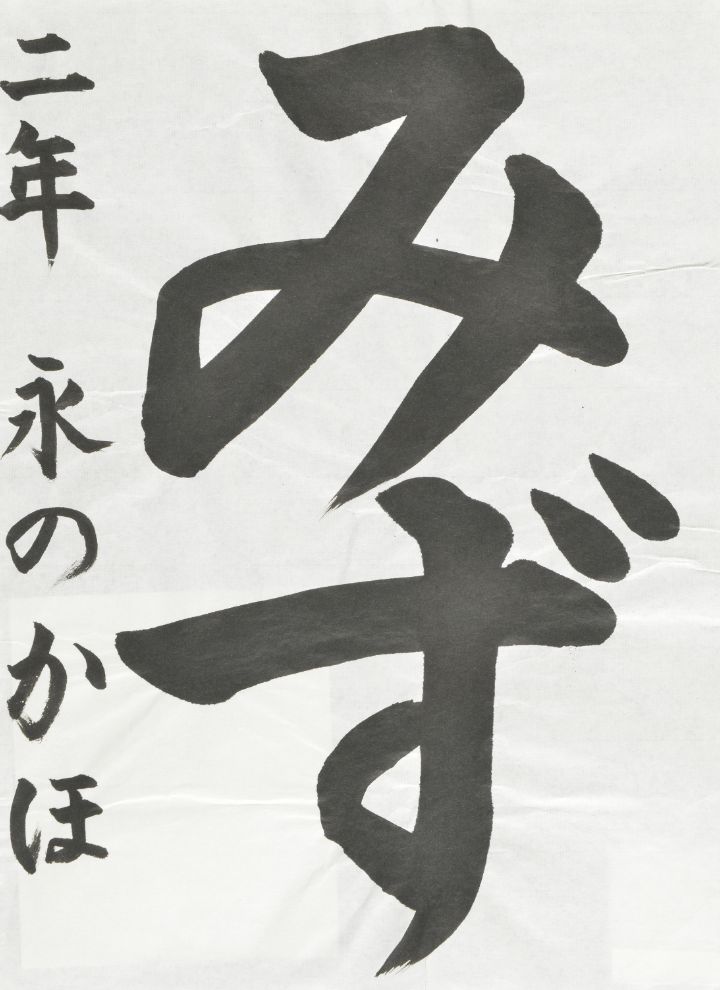 みず
二年 永のかほ